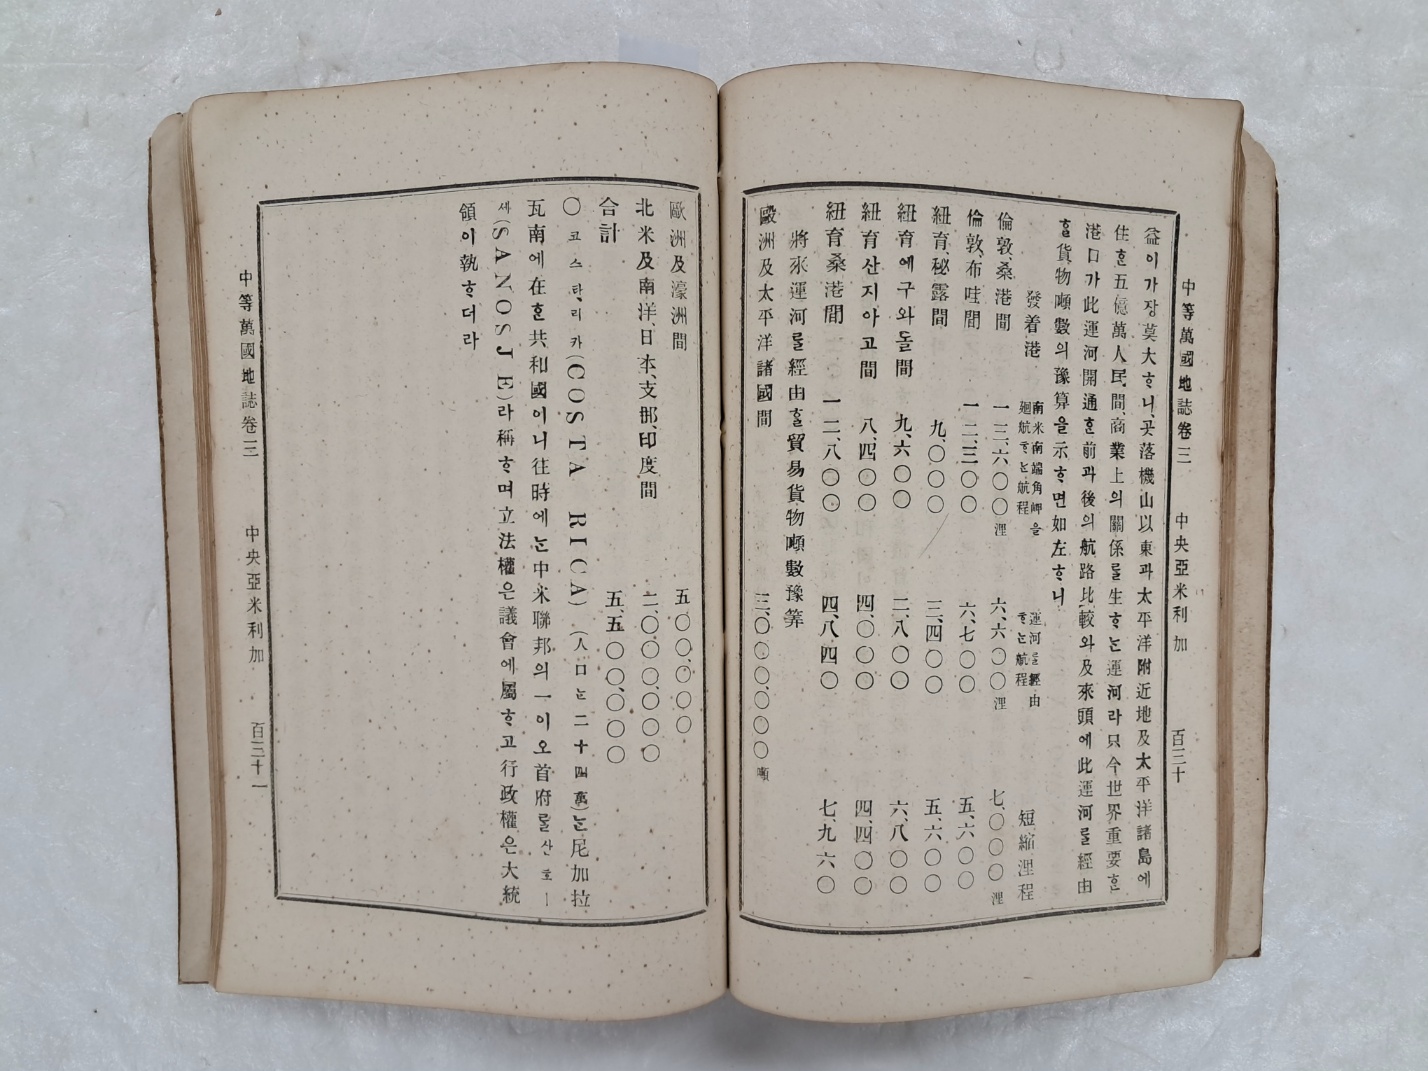 中等萬國地誌卷三 中央亞米利加 百三十
益이가장莫大ᄒᆞ니、곳落機山以東과太平洋附近地及太平洋諸島에
住ᄒᆞᆫ五億萬人民、間、商業上의關係ᄅᆞᆯ生ᄒᆞᄂᆞᆫ運河라只今世界重要ᄒᆞᆫ
港口가此運河開通ᄒᆞᆫ前과後의航路比較와及來頭에此運河ᄅᆞᆯ經由
ᄒᆞᆯ貨物噸數의豫算을示ᄒᆞ면如左ᄒᆞ니
發着港 南米南端角岬을廻航ᄒᆞᄂᆞᆫ航程 運河ᄅᆞᆯ經由ᄒᆞᄂᆞᆫ航程 短縮浬程
倫敦、桑港間 一三、六〇〇浬 六、六〇〇浬 七、〇〇〇浬
倫敦、布哇間 一二、三〇〇 六、七〇〇 五、六〇〇
紐育、秘露間 九、〇〇〇 三、四〇〇 五、六〇〇
紐育에구와돌間 九、六〇〇 二、八〇〇 六、八〇〇
紐育산지아고間 八、四〇〇 四、〇〇〇 四、四〇〇
紐育桑港間 一二、八〇〇 四、八四〇 七、九六〇
將來運河ᄅᆞᆯ經由ᄒᆞᆯ貿易貨物噸數豫筭
歐洲及太平洋諸國間 三、〇〇〇、〇〇〇噸
歐洲及濠洲間 五〇〇、〇〇〇
北米及南洋、日本、支那、印度間 二、〇〇〇、〇〇〇
合計 五、五〇〇、〇〇〇
〇코스타、리카(COSTA RICA)(人口ᄂᆞᆫ二十四萬)ᄂᆞᆫ尼加拉
瓦南에在ᄒᆞᆫ共和國이니往時에ᄂᆞᆫ中米聯邦의一이오首府ᄅᆞᆯ산호ㅣ
세(SANOSJE)라稱ᄒᆞ며立法權은議會에屬ᄒᆞ고行政權은大統
領이執ᄒᆞ더라
中等萬國地誌卷三 中央亞米利加 百三十一